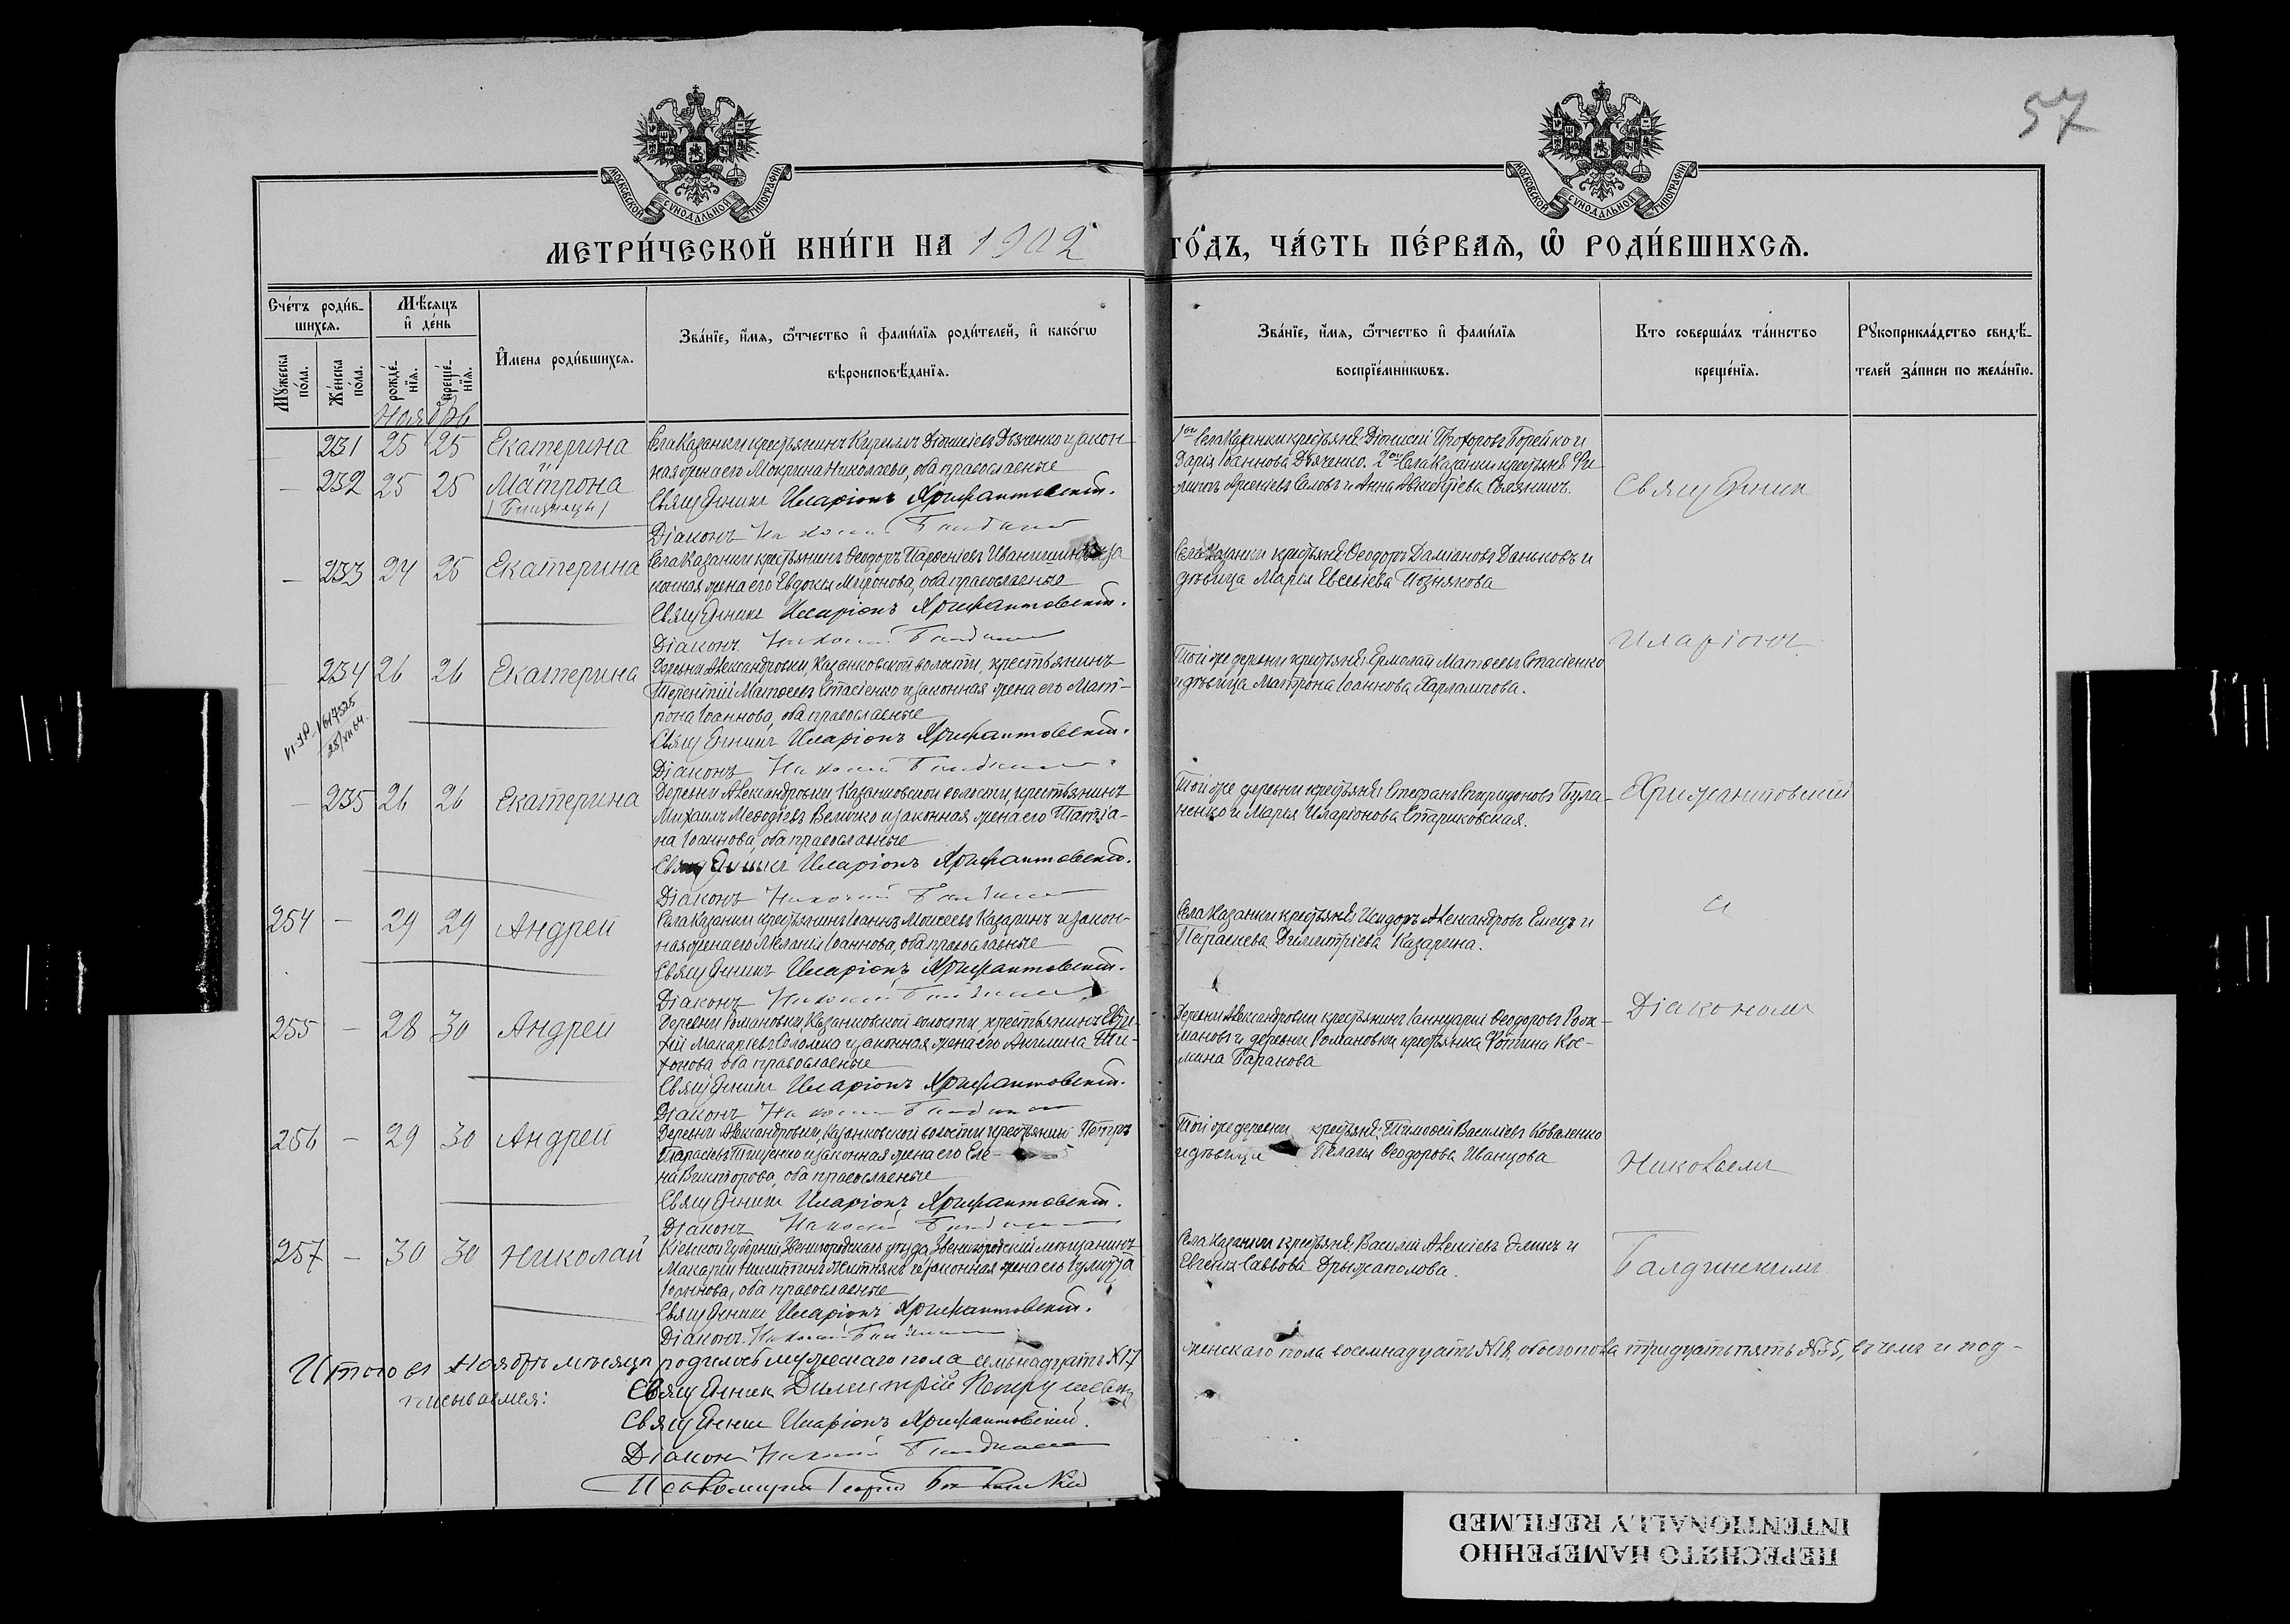 57
МОСКОВСКОЙ СѴНОДАЛЬНОЙ ТИПОГРАФІИ
МОСКОВСКОЙ СѴНОДАЛЬНОЙ ТИПОГРАФІИ
МЕТРИ́ЧЕСКОЙ КНИ́ГИ НА 1902
ГО́ДЪ, ЧА́СТЬ ПЕ́РВАѦ, Ѡ҆ РОДИ́ВШИХСѦ.
Сче́тъ роди́в-
шихсѧ.
Мꙋ́жеска
по́ла.
Же́нска
по́ла.
Мѣ́сѧцъ
и҆ де́нь
рожде́-
нїѧ.
креще́-
нїѧ.
И҆мена роди́вшихсѧ.
Зва́нїе, и҆́мѧ, ѻ҆́тчество и҆ фами́лїѧ роди́телей, и҆ како́гѡ
вѣроисповѣ́данїѧ.
Зва́нїе, и҆́мѧ, ѻ҆́тчество и҆ фами́лїѧ
воспрїе́мникѡвъ.
Кто соверша́лъ та́инство
креще́нїѧ.
Рꙋкоприкла́дство свидѣ́-
телей за́писи по жела́нїю.
Ноябрь
— 231 25 25 Екатерина
Села Казанки крестьянинъ Кириллъ Діонисіевъ Дьяченко и закон-
ная жена его Мокрина Николаева, оба православные
1ой Села Казанки крестьяне: Діонисій Прохоровъ Борейко и
Дарія Іоаннова Дьяченко. 2ой Села Казанки крестьяне: Фи-
липпъ Арсеніевъ и Анна
— 232 25 25 Матрона
/Близнецы/
Священникъ Иларіонъ Хрисанфовскій.
Діаконъ Николай
Священникъ
— 233 24 25 Екатерина
Села Казанки крестьянинъ Ѳеодоръ Парѳеніевъ и за
конная жена его Евдокія Миронова, оба православные
Священникъ Иларіонъ
Діаконъ Николай
Села Казанки крестьяне: Ѳеодоръ Даміановъ Даньковъ и
дѣвица Марія Евсевіева Познякова
Иларіонъ
— 234 26 26 Екатерина
Деревни Александровки, Казанковской волости, крестьянинъ
Терентій Матѳеевъ Стасіенко и законная жена его Мат-
рона Іоаннова, оба православные
Священникъ Иларіонъ
Діаконъ Николай
Той же деревни крестьяне: Ермолай Матѳеевъ Стасіенко
и дѣвица Матрона Іоаннова Харлампова.
— 235 26 26 Екатерина
Деревни Александровки Казанковской волости, крестьянинъ
Михаилъ Меѳодіевъ Величко и законная жена его Татіа-
на Іоаннова, оба православные
Священникъ Иларіонъ
Діаконъ Николай
Той же деревни крестьяне: Стефанъ Спиридоновъ Була-
ненко и Марія Иларіонова Стариковская.
254 — 29 29 Андрей
Села Казанки крестьянинъ Іоаннъ Моисеевъ Казаринъ и закон-
ная жена его Меланія Іоаннова, оба православные
Священникъ Иларіонъ
Діаконъ Николай
Села Казанки крестьяне: Исидоръ Александровъ Елецъ и
Параскева Димитріева Казарина.
и
255 — 28 30 Андрей
Деревни Романовки, Казанковской волости, крестьянинъ Евти-
хій Макаріевъ Соломка и законная жена его Акилина Ти-
хонова оба православные
Священникъ Иларіонъ
Діаконъ Николай
Деревни Александровки крестьянинъ Іаннуарій Ѳеодоровъ Рох-
мановъ и деревни Романовки крестьянка Фотина Кос-
мина Баранова
Діакономъ
256 — 29 30 Андрей
Деревни Александровки, Казанковской волости крестьянинъ Петръ
Тарасіевъ Тищенко и законная жена его Еле-
на Викторова, оба православные
Священникъ Иларіонъ
Діаконъ Николай
Той же деревни крестьяне: Тимоѳей Василіевъ Коваленко
и дѣвица Пелагія Ѳеодорова Иванцова
Николаемъ
257 — 30 30 Николай
Кіевской губерніи, Звенигородскаго уѣзда, Звенигородскій мѣщанинъ
Макарій Никитинъ Житнякъ и законная жена его Іулитта
Іоаннова, оба православные
Священникъ Иларіонъ
Діаконъ Николай
Села Казанки крестьяне: Василій Алексіевъ и
Евгенія Саввова Дрыжаполова.
Балдинскимъ
Итого въ Ноябрѣ мѣсяцѣ родилось мужескаго пола семьнадцать №17
женскаго пола восемнадцать №18, обоего пола тридцать пять №35, въ чемъ и под-
писываемся:
Священник Димитрій
Священник Иларіонъ
Діакон Николай
Псаломщикъ Георгій
ПЕРЕСНЯТО НАМЕРЕННО
INTENTIONALLY REFILMED